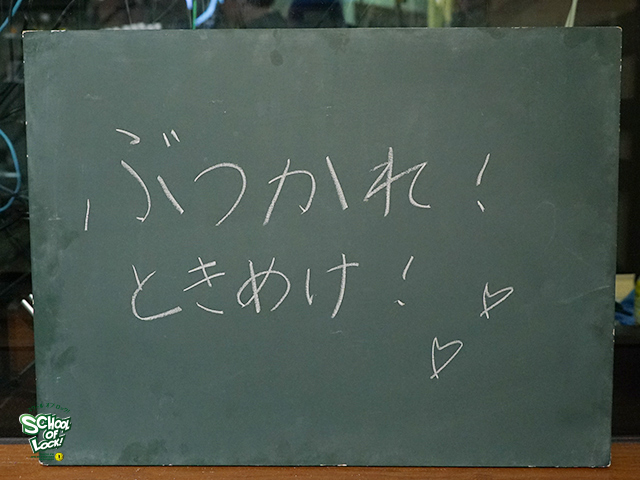 ぶつかれ！
ときめけ！♡♡
SCHOOL
OF
LOCK!